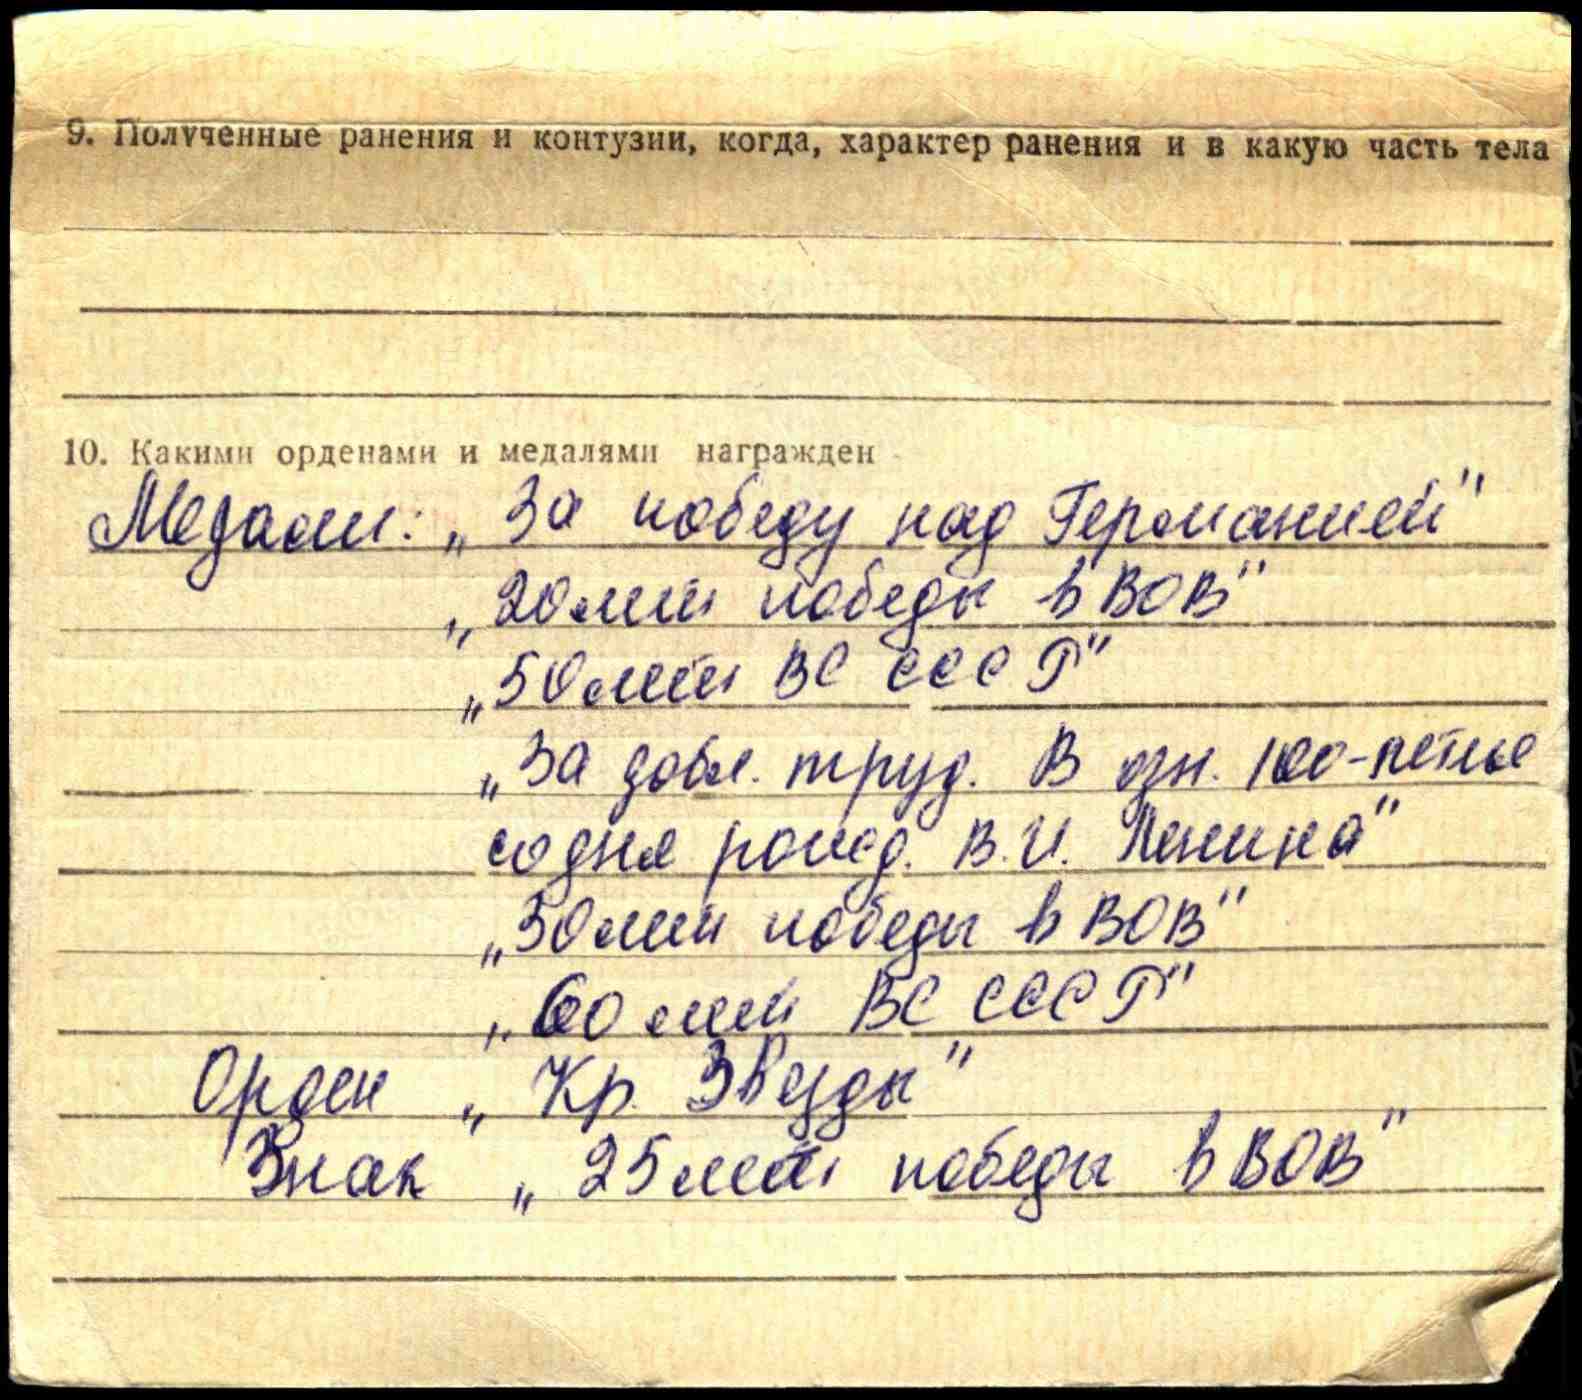 9. Полученные ранения и контузии, когда, характер ранения и в какую часть тела
10. Какими орденами и медалями награжден
Медали: „За победу над Германией"
„20 лет победы в ВОВ"
„50 лет ВС СССР"
„За добл. труд. В озн. 100-летие
со дня рожд. В.И. Ленина"
„30 лет победы в ВОВ"
„60 лет ВС СССР"
Орден „Кр. Звезды"
Знак „25 лет победы в ВОВ"